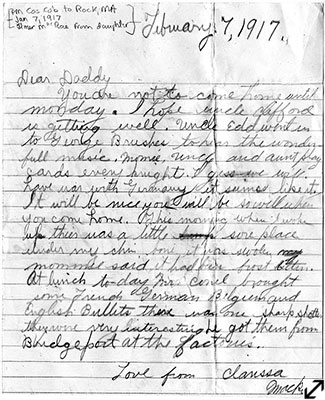 from Cos Cob to Rock, MA
Jan 7, 1917
Elmer MacRae from daughter
February, 7, 1917.
Dear Daddy
You are not to come home until
monday. I hope uncle Clifford
is getting well. Uncle Edd went in
to George Brushes to hear the wonder
full music. and aunt play
cards every knight. I gess we will
have war with Germany it semes like it.
It will be nice you will be so well when
you come home. This morning when I woke
up thier was a little sore place
under my chin, it was
mommie said I had bin frost bitten.
At lunch to day Mr. brought
some French German Belgium and
English Bullets there was one sharp
they were very interesting he got them from
Bridgeport at the factories.
Love from Clarissa
Mack.